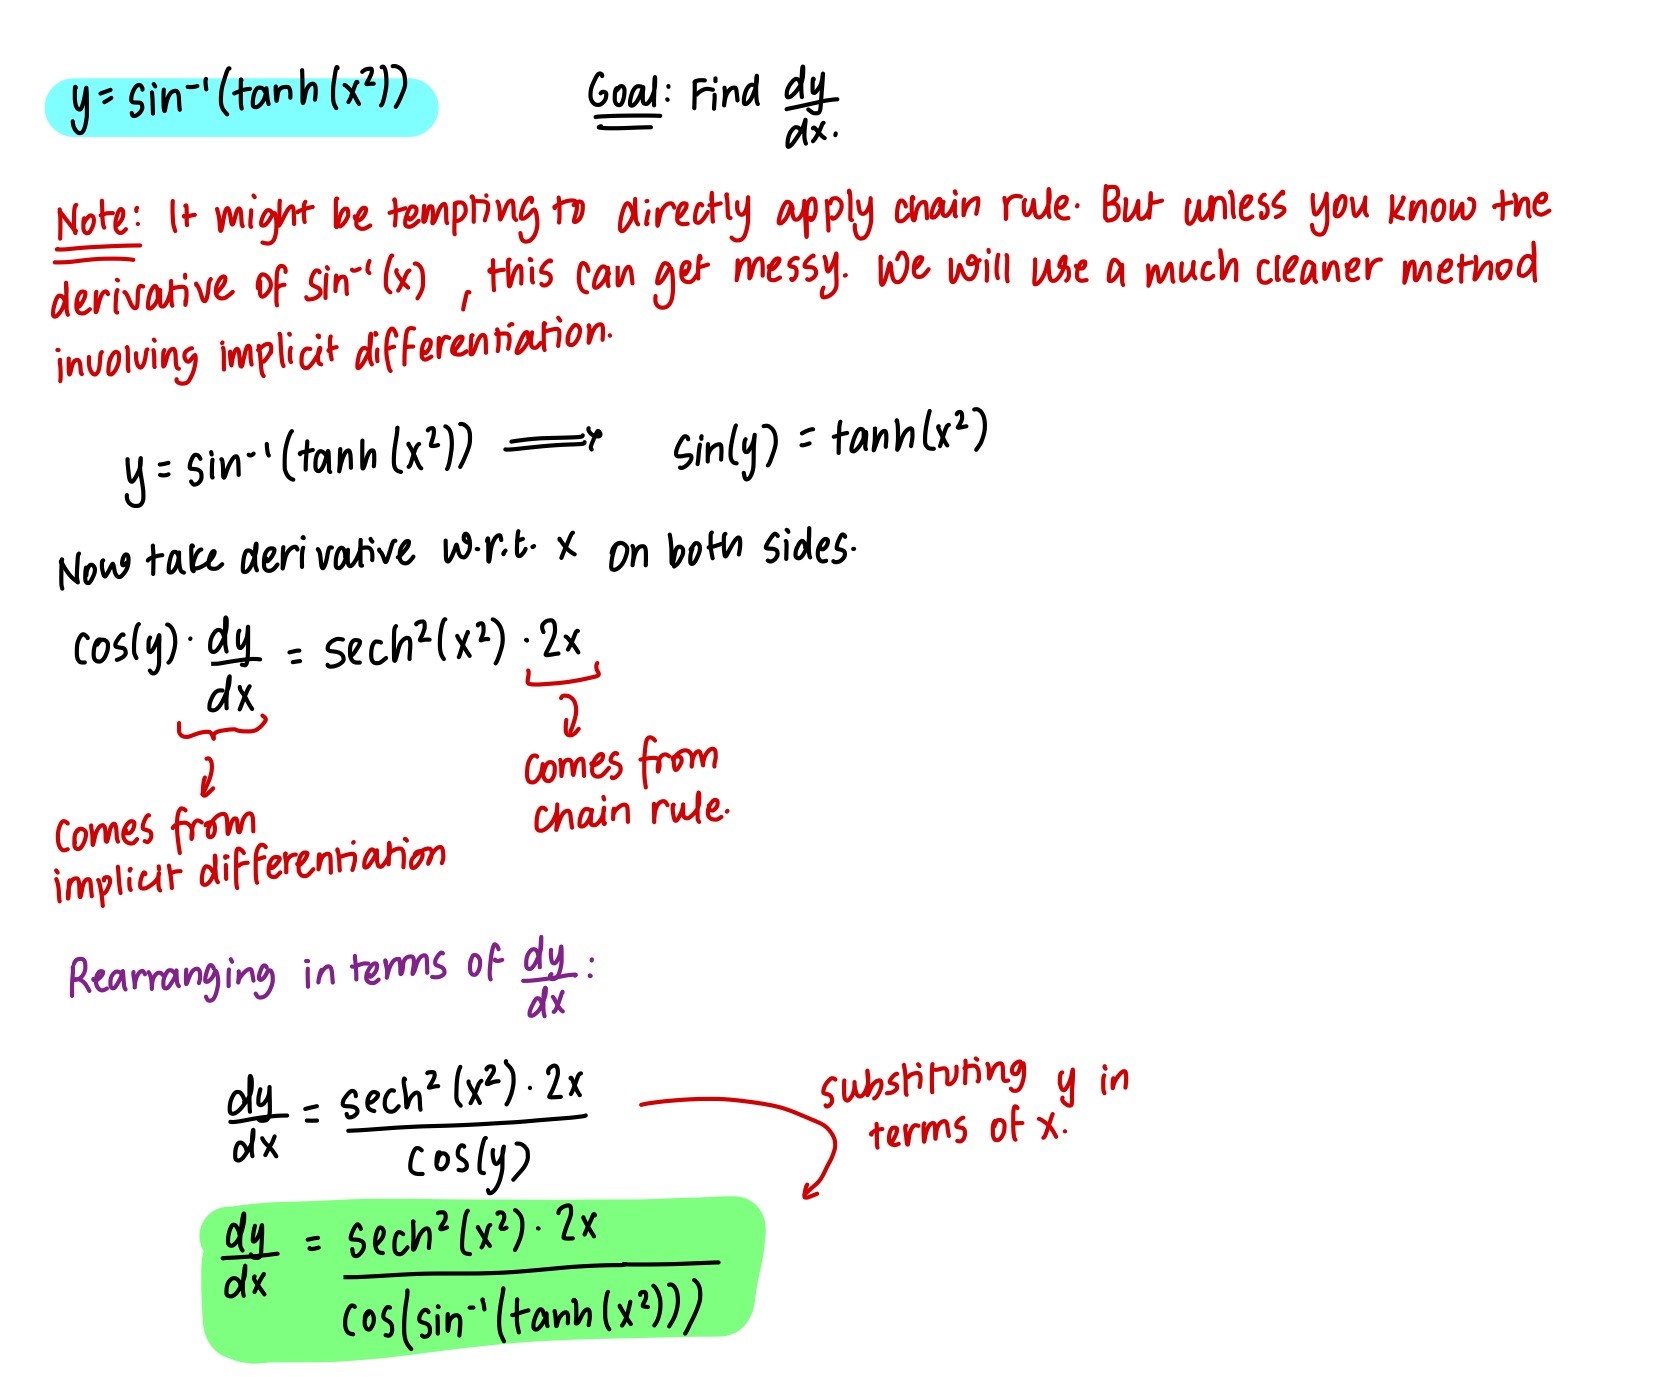 y = sin⁻¹(tanh(x²)) Goal: Find dy/dx.
Note: It might be tempting to directly apply chain rule. But unless you know the
derivative of sin⁻¹(x), this can get messy. We will use a much cleaner method
involving implicit differentiation.
y = sin⁻¹(tanh(x²)) ⟹ sin(y) = tanh(x²)
Now take derivative w.r.t. x on both sides.
cos(y) · dy/dx = sech²(x²) · 2x
comes from
chain rule.
comes from
implicit differentiation
Rearranging in terms of dy/dx:
dy/dx = sech²(x²) · 2x / cos(y)
substituting y in
terms of x.
dy/dx = sech²(x²) · 2x / cos(sin⁻¹(tanh(x²)))